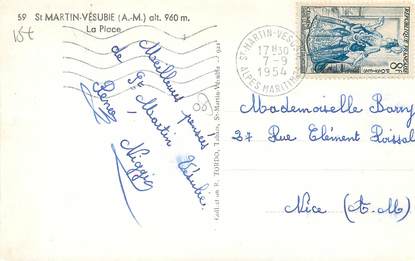 59 St MARTIN-VÉSUBIE (A.-M.) alt. 960 m.
La Place
15t
Meilleures pensées
de St Martin Vésubie.
Renée Niggi
Collection R. TORDO, Tabacs, St-Martin-Vésubie
St MARTIN-VÉSUBIE
17H30
7-9
1954
ALPES-MARITIMES
POSTES
8F
Mademoiselle Barry
27 Rue Clément Roissal
Nice (A-M)